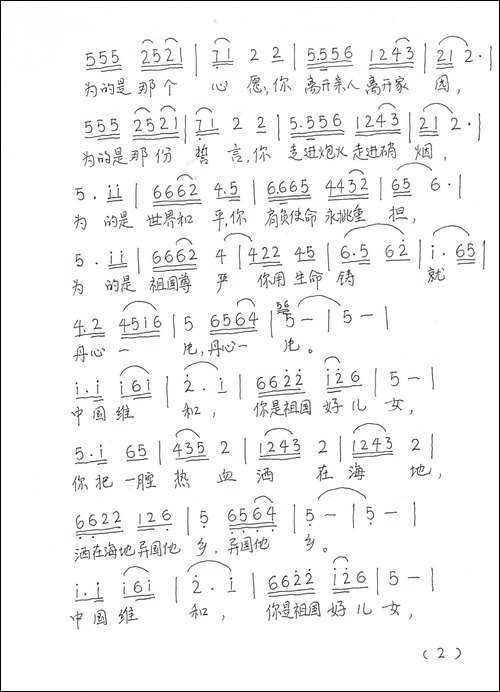 555 2521 | 71 2 2 | 5.556 1243 | 21 2· |
为的是那个 心愿,你 离开亲人离开家 园,
555 2521 | 71 2 2 | 5.556 1243 | 21 2· |
为的是那份 誓言,你 走进炮火走进硝 烟,
5· ii | 6662 4.5 | 6.665 4432 | 65 6· |
为 的是 世界和 平,你 肩负使命永挑重 担,
5· ii | 6662 4 | 422 45 | 6.5 62 | i. 65 |
为 的是 祖国尊 严 你用生命 铸 就
4.2 45i6 | 5 6564 | 5 — | 5 — |
丹心一 片,丹心一 片。
i.i i6i | 2· i | 6622 i26 | 5 — |
中国维 和, 你是祖国好儿 女,
5.i 65 | 435 2 | 1243 2 | 1243 2 |
你把一腔 热 血 洒 在 海 地,
6622 126 | 5 6564 | 5 — | 5 — |
洒在海地异国他 乡, 异国他 乡。
i.i i6i | 2· i | 6622 i26 | 5 — |
中国维 和, 你是祖国好儿 女,
(2)